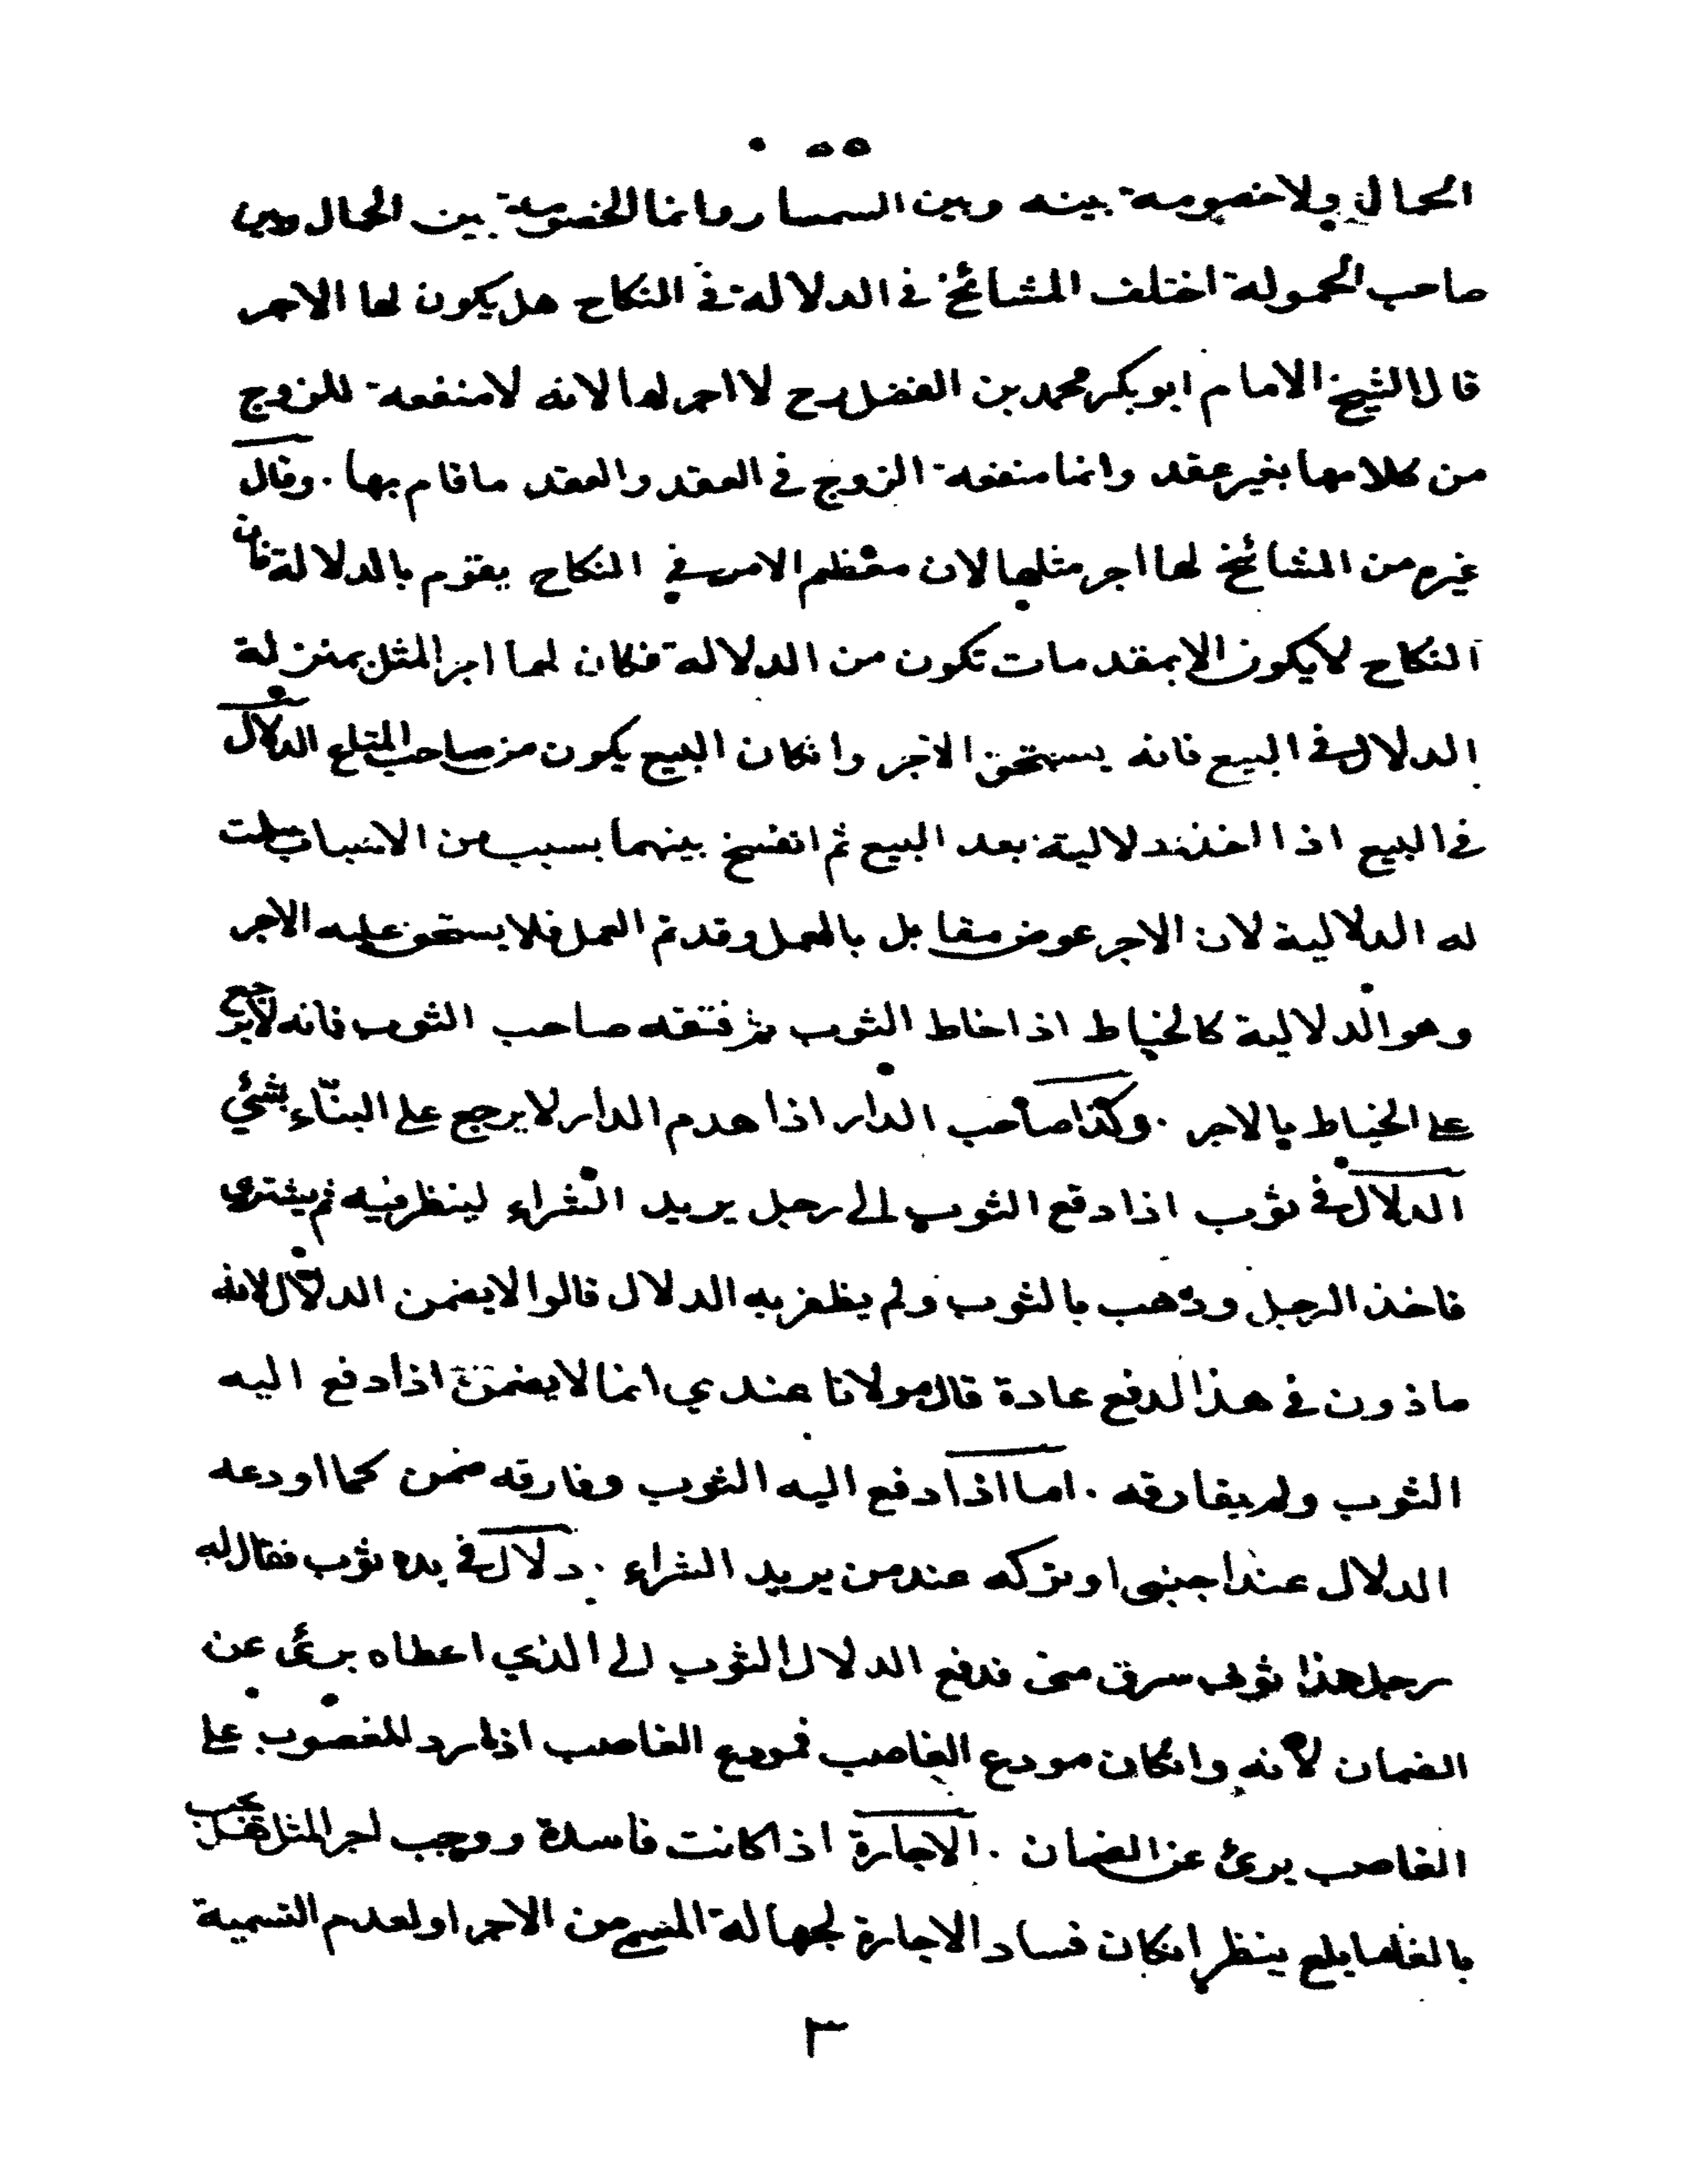 ٥٥
الحمال ولا خصومة بينه وبين السمسار وانما الخصومة بين الحمال وبين
صاحب الحمولة اختلف المشائخ فى الدلالة فى النكاح هل يكون لها الاجر
قال الشيخ الامام ابو بكر محمد بن الفضل رح لا اجر لها لانه لا منفعة للزوج
من كلامها بغير عقد وانما منفعة الزوج فى العقد والعقد ما قام بها . وقال
غيره من المشائخ لها اجر مثلها لان معظم الامر فى النكاح يقوم بالدلالة فان
النكاح لا يكون الا بمقدمات تكون من الدلالة فكان لها اجر المثل بمنزلة
الدلال فى البيع فانه يستحق الاجر وانكان البيع يكون من صاحب المتاع الدلال
فى البيع اذا اخذ دلالية بعد البيع ثم انفسخ بينهما بسبب من الاسباب سلمت
له الدلالية لان الاجر عوض مقابل بالعمل وقد تم العمل فلا يستحق عليه الاجر
وهو الدلالية كالخياط اذا خاط الثوب ثم فتقه صاحب الثوب فانه لا يرجع
على الخياط بالاجر . وكذا صاحب الدار اذا هدم الدار لا يرجع على البنّاء بشئ
الدلال فى ثوب اذا دفع الثوب الى رجل يريد الشراء لينظر فيه ثم يشترى
فاخذ الرجل وذهب بالثوب ولم يظفر به الدلال قالوا لا يضمن الدلال لانه
ماذون فى هذا الدفع عادة قال مولانا عندي انما لا يضمن اذا دفع اليه
الثوب ولم يفارقه . اما اذا دفع اليه الثوب وفارقه ضمن كما اودعه
الدلال عند اجنبى او تركه عند من يريد الشراء . دلال فى يده ثوب فقال له
رجل هذا ثوبى سرق منى فدفع الدلال الثوب الى الذي اعطاه برئ عن
الضمان لانه وانكان مودع الغاصب فمودع الغاصب اذا رد المغصوب على
الغاصب برئ عن الضمان . الاجارة اذا كانت فاسدة ووجب اجر المثل هل يجب
بالغا ما بلغ ينظر انكان فساد الاجارة لجهالة المسمى من الاجر او لعدم التسمية
٣